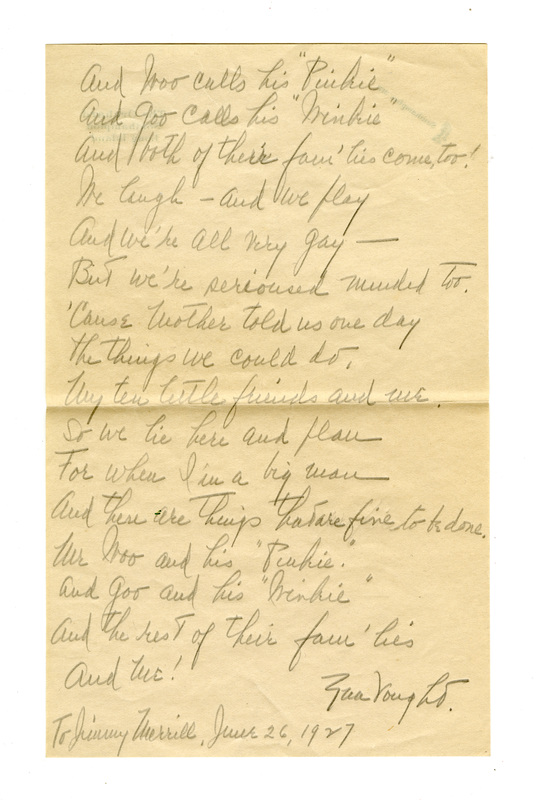 And Woo calls his "Pinkie"
And Goo calls his "Winkie"
And both of their fam'lies come, too!
We laugh – and we play
And we're all very gay —
But we're serioused minded too.
'Cause Mother told us one day
The things we could do,
My ten little friends and me.
So we lie here and plan
For when I'm a big man
And these are things that are fine to be done.
Mr Woo and his "Pinkie."
And Goo and his "Winkie"
And the rest of their fam'lies
And Me!
Vought.
To Jimmy Merrill, June 26, 1927